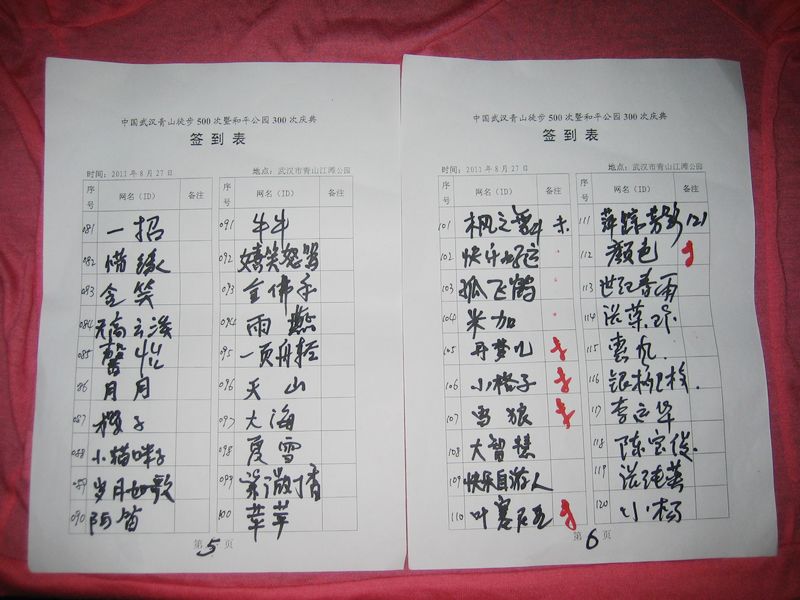 中国武汉青山徒步500次暨和平公园300次庆典
签到表
时间：2011年8月27日 地点：武汉市青山江滩公园
序号 网名（ID） 备注 序号 网名（ID） 备注
081 一招 091 牛牛
082 惜缘 092 嬉笑怒骂
083 金笑 093 金佛手
084 094 雨燕
085 馨怡 095 一页舟轻
86 月月 096 天山
087 097 大海
088 小猫咪子 098 夏雪
089 岁月如歌 099 紫薇丁香
090 阿笛 100 苹苹
第5页
中国武汉青山徒步500次暨和平公园300次庆典
签到表
时间：2011年8月27日 地点：武汉市青山江滩公园
序号 网名（ID） 备注 序号 网名（ID） 备注
101 枫之 111 萍踪 121
102 快乐好运 112 颜色
103 孤飞鹤 113 世纪春雨
104 米加 114
105 丹梦儿 115
106 小格子 116
107 雪狼 117 李运华
108 大智慧 118 陈宝俊
109 快乐自游人 119
110 叶塞尼亚 120 小杨
第6页